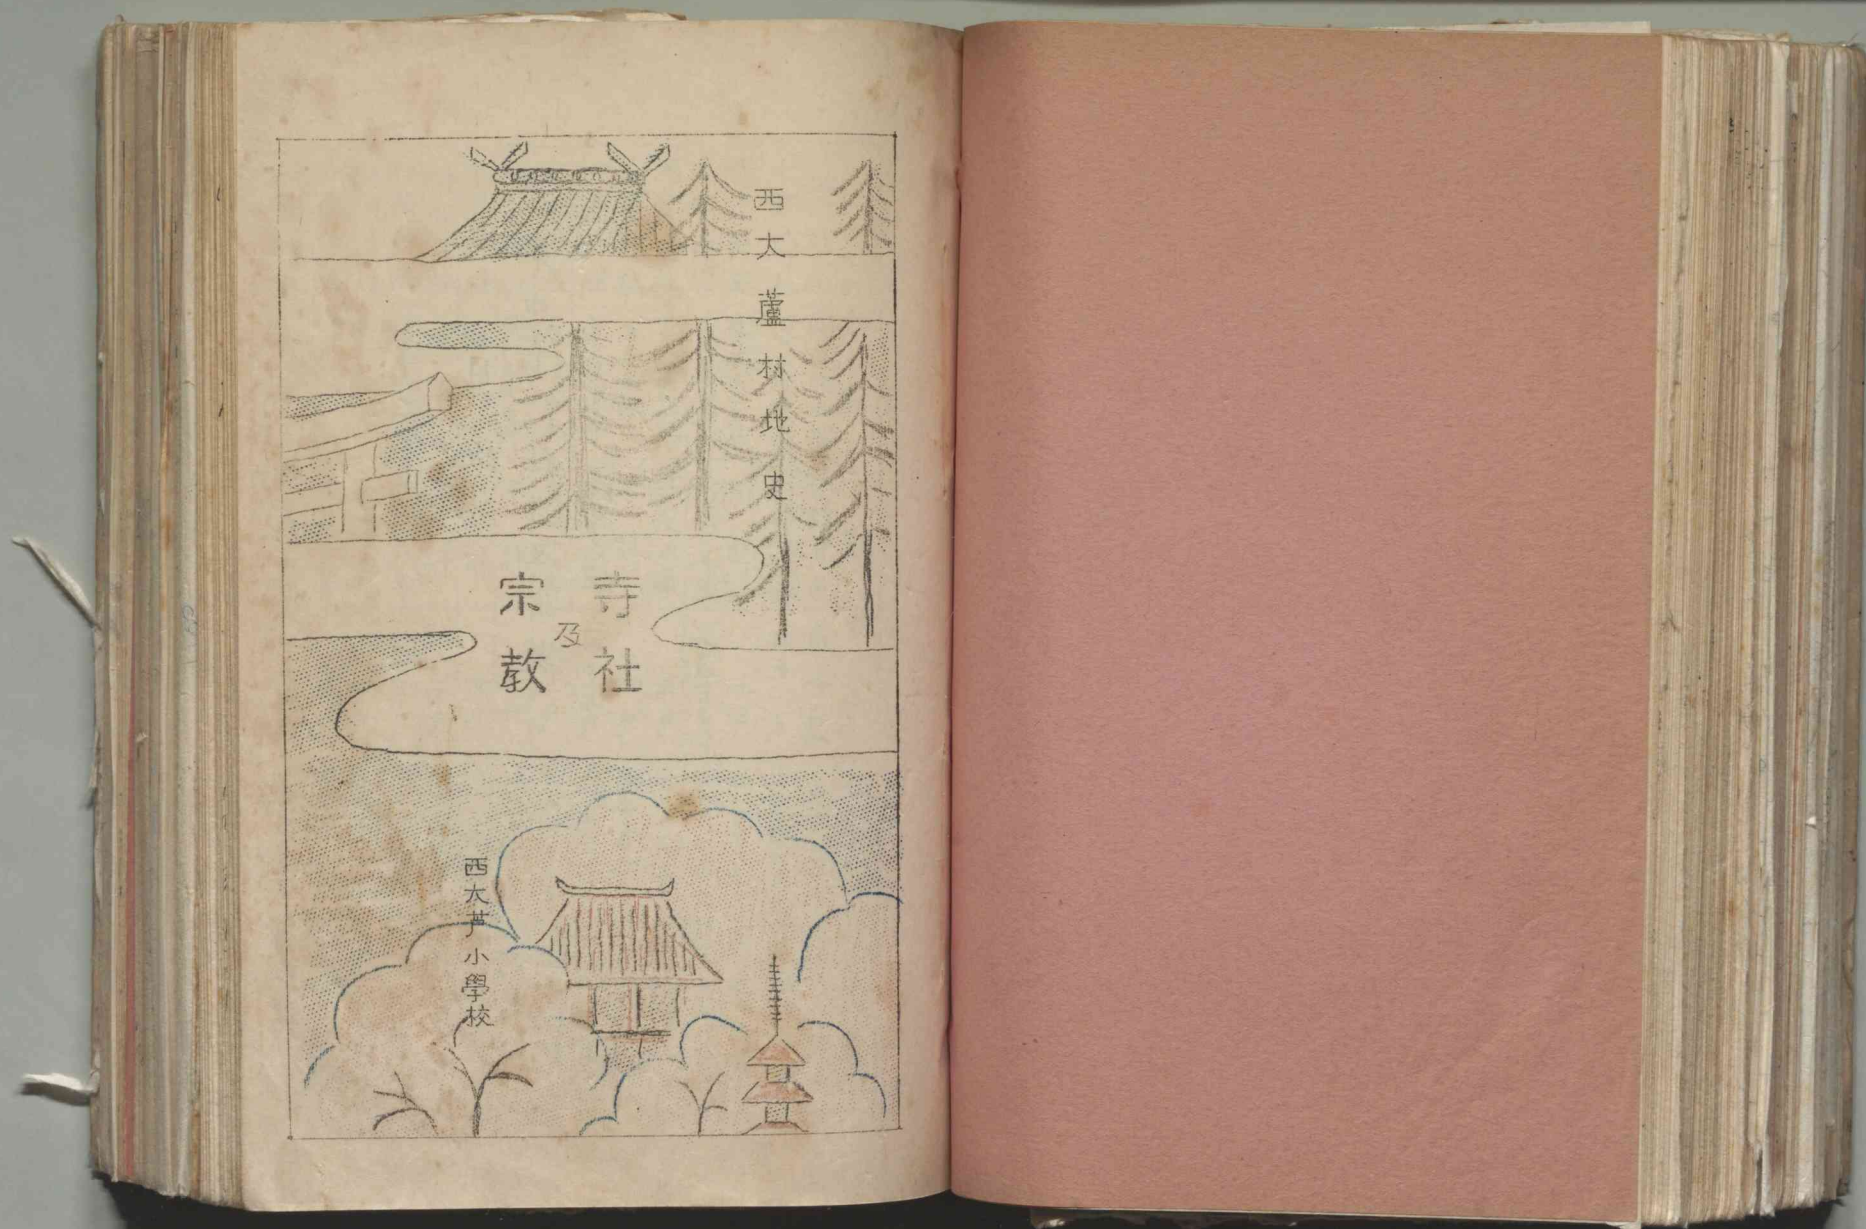 西大蘆村地史
寺社
及
宗教
西大芦小學校